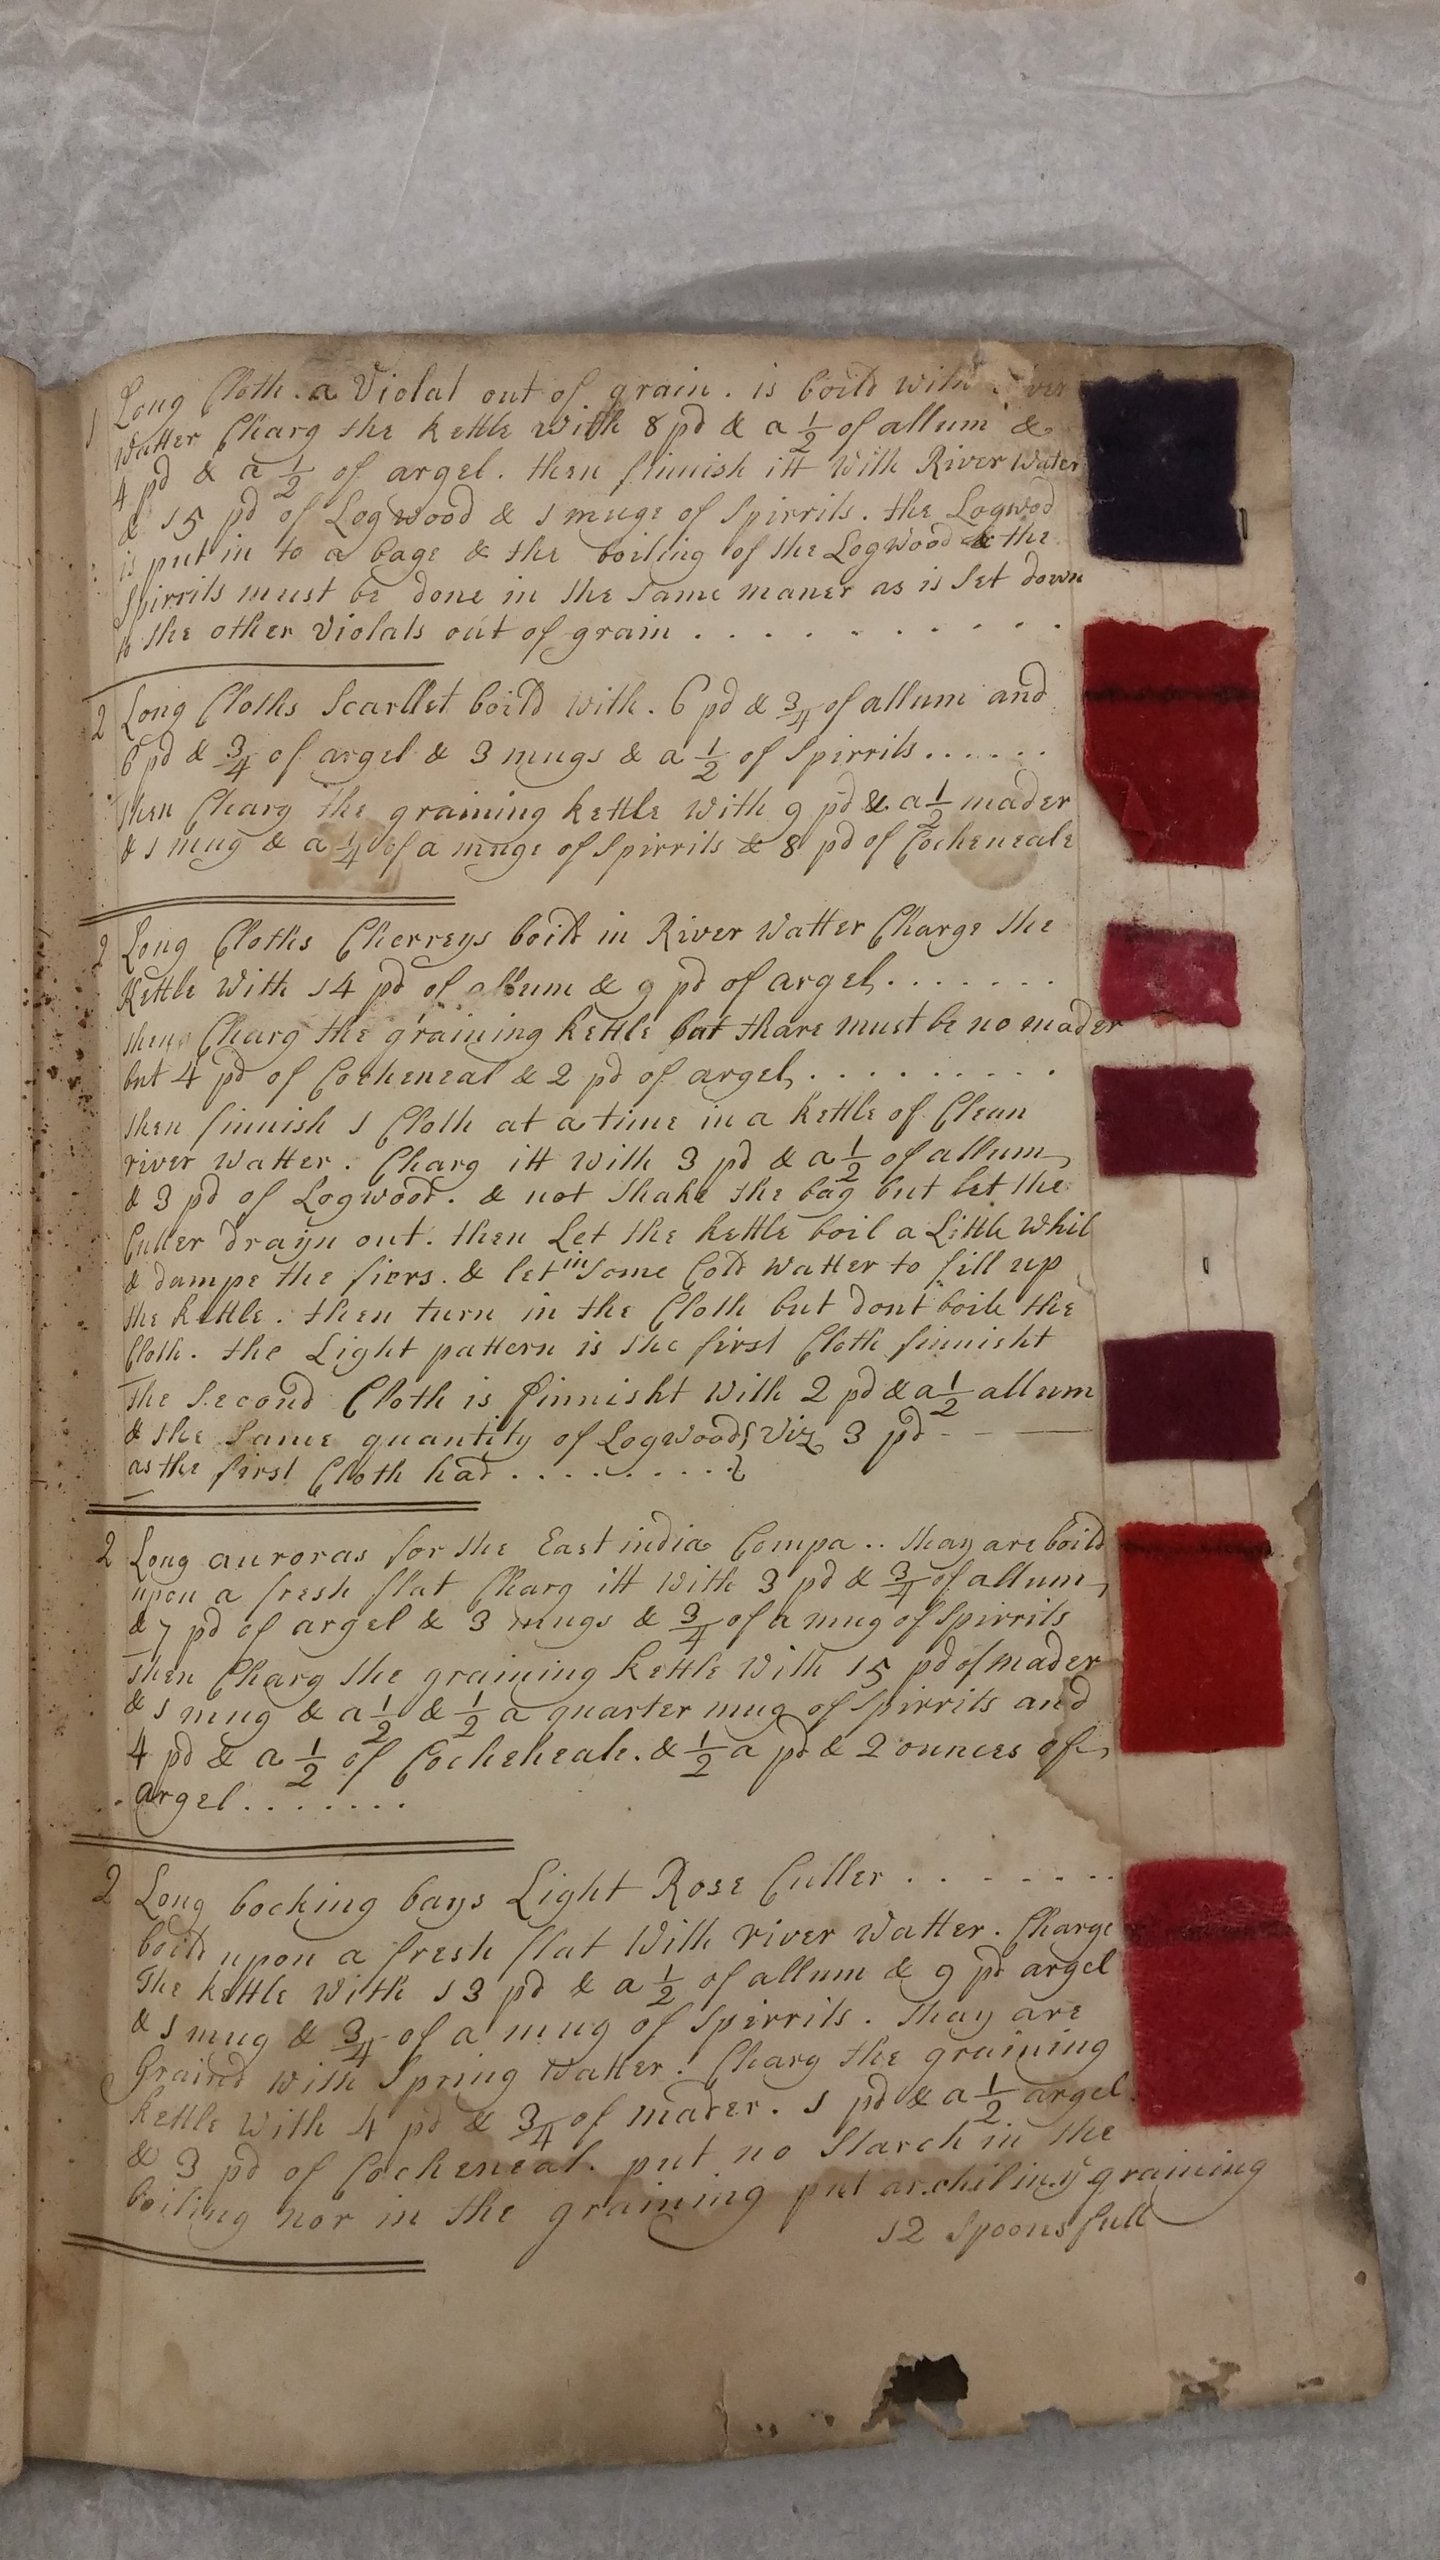 1 Long Cloth. a Violat out of grain. is boild with
Watter Charg the kettle with 8 pd & a 1/2 of allum &
4 pd & a 1/2 of argel. then finnish itt with River water
& 15 pd of Logwood & 1 muge of Spirrits. the Logwod
is put in to a bage & the boiling of the Logwood & the
Spirrits must be done in the same maner as is set down
to the other Violats out of grain . . . . . . . . . . .
2 Long Cloths Scarllet boild with. 6 pd & 3/4 of allum and
6 pd & 3/4 of argel & 3 mugs & a 1/2 of Spirrits......
Then Charg the graining kettle with 9 pd & a 1/2 mader
& 1 mug & a 1/4 of a muge of Spirrits & 8 pd of Cocheneale
2 Long Cloths Cherreys boild in River Watter Charge the
Kettle with 14 pd of allum & 9 pd of argel. . . . . . .
then Charg the graining kettle but thare must be no mader
but 4 pd of Cocheneal & 2 pd of argel, . . . . . . . . .
then finnish 1 Cloth at a time in a kettle of Clean
river Watter. Charg itt with 3 pd & a 1/2 of allum,
& 3 pd of Logwood. & not shake the bag but let the
Culler drayn out. then Let the kettle boil a Little whil
& dampe the fiers. & let in some Cold watter to fill up
the kettle. then turn in the Cloth but dont boile the
Cloth. the Light pattern is the first Cloth finnisht
The Second Cloth is finnisht with 2 pd & a 1/2 allum
& the same quantity of Logwood, Viz, 3 pd - - —
as the first Cloth had . . . . . . . . .
2 Long auroras for the East india Compa.. thay are boild
upon a fresh flat Charg itt with 3 pd & 3/4 of allum,
& 7 pd of argel & 3 mugs & 3/4 of a mug of Spirrits
Then Charg the graining kettle with 15 pd of mader
& 1 mug & a 1/2 & 1/2 a quarter mug of Spirrits and
4 pd & a 1/2 of Cocheneale. & 1/2 a pd & 2 ounces of,
argel.......
2 Long bocking bays Light Rose Culler . . . . . . .
boild upon a fresh flat With river Watter. Charge
The kettle with 13 pd & a 1/2 of allum & 9 pd argel
& 1 mug & 3/4 of a mug of Spirrits. Thay are
Graind with Spring Watter. Charg the graining
kettle with 4 pd & 3/4 of mader. 1 pd & a 1/2 argel.
& 3 pd of Cocheneal. put no starch in the
boiling nor in the graining put archil in ye graining
12 spoonsfull